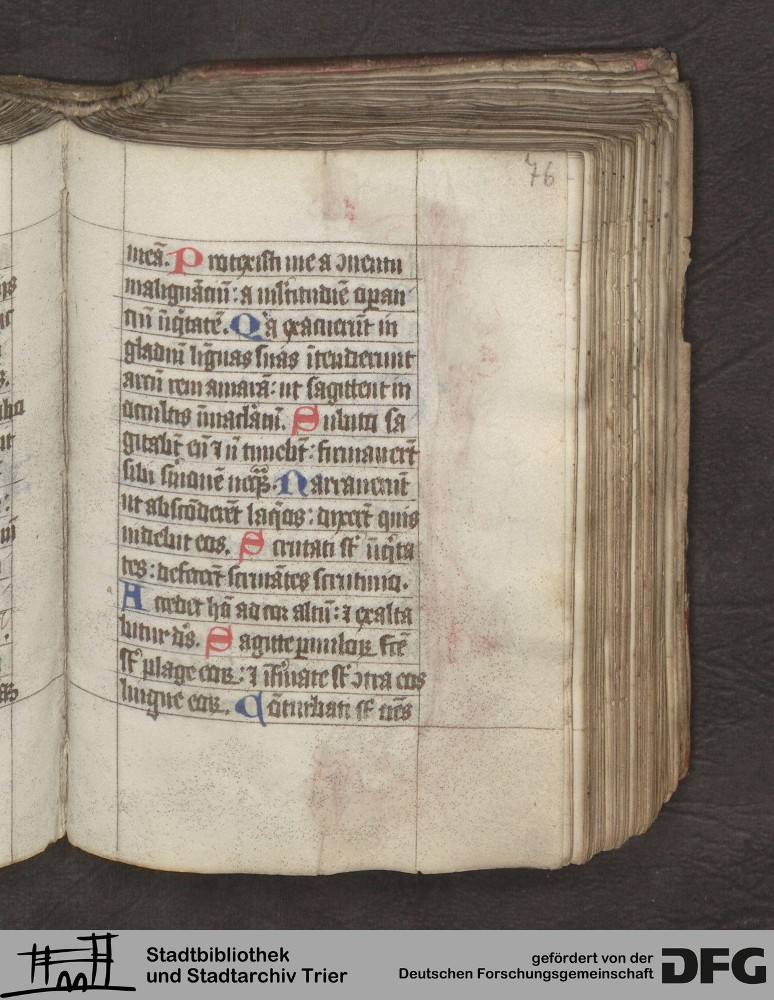 76
meā. Protexisti me a ↄuentu
malignāciū: a multitudīe operan
ciū īiq̄tatē. Qꝛa exacuerūt in
gladiū līguas suas ītenderunt
arcū rem amarā: ut sagittent in
occultis īmaculatū. Subito sa
gitabt̄ eū ⁊ n̄ timebt̄: firmauert̄
sibi sermonē neq̄ꝫ. Narrauerūt
ut abscōderēt laq̄os: dixert̄ quis
uidebit eos. Scrutati sт̄ īiq̄ta
tes: defecert̄ scrutātes scrutinio.
Accedet hō ad cor altū: ⁊ exalta
bitur ds̄. Sagitte paruulorꝝ fc̄e
sт̄ plage eorꝝ: ⁊ īfirmate sт̄ ↄtra eos
lingue eorꝝ. Cōturbati sт̄ oēs
Stadtbibliothek
und Stadtarchiv Trier
gefördert von der
Deutschen Forschungsgemeinschaft
DFG